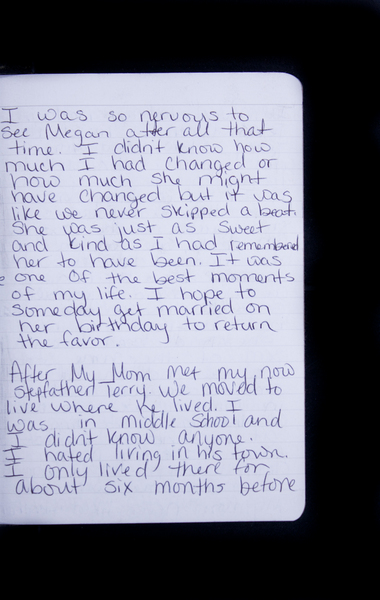 I was so nervous to
see Megan after all that
time. I didn't know how
much I had changed or
how much she might
have changed but it was
like we never skipped a beat.
She was just as sweet
and kind as I had remembered
her to have been. It was
one of the best moments
of my life. I hope to
someday get married on
her birthday to return
the favor.
After My Mom met my now
stepfather Terry. We moved to
live where he lived. I
was in middle School and
I didn't know anyone.
I hated living in his town.
I only lived there for
about six months before